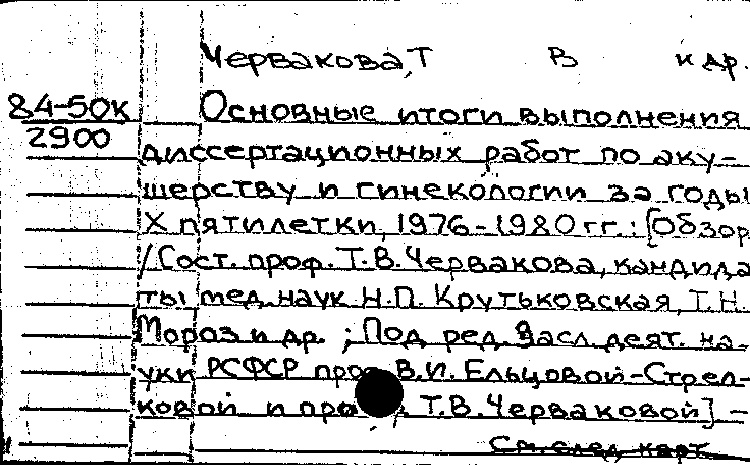 Червакова, Т В и др.
84-50к Основные итоги выполнения
2900
диссертационных работ по аку-
шерству и гинекологии за годы
X пятилетки, 1976-1980 гг.: [Обзор
/Сост. проф. Т.В. Червакова, кандида
ты мед. наук Н.П. Крутьковская, Т.Н.
Мороз и др. ; Под ред. Засл. деят. на-
уки РСФСР В.И. Ельцовой-Стрел-
ковой и Т.В. Черваковой] -
См. след. карт.